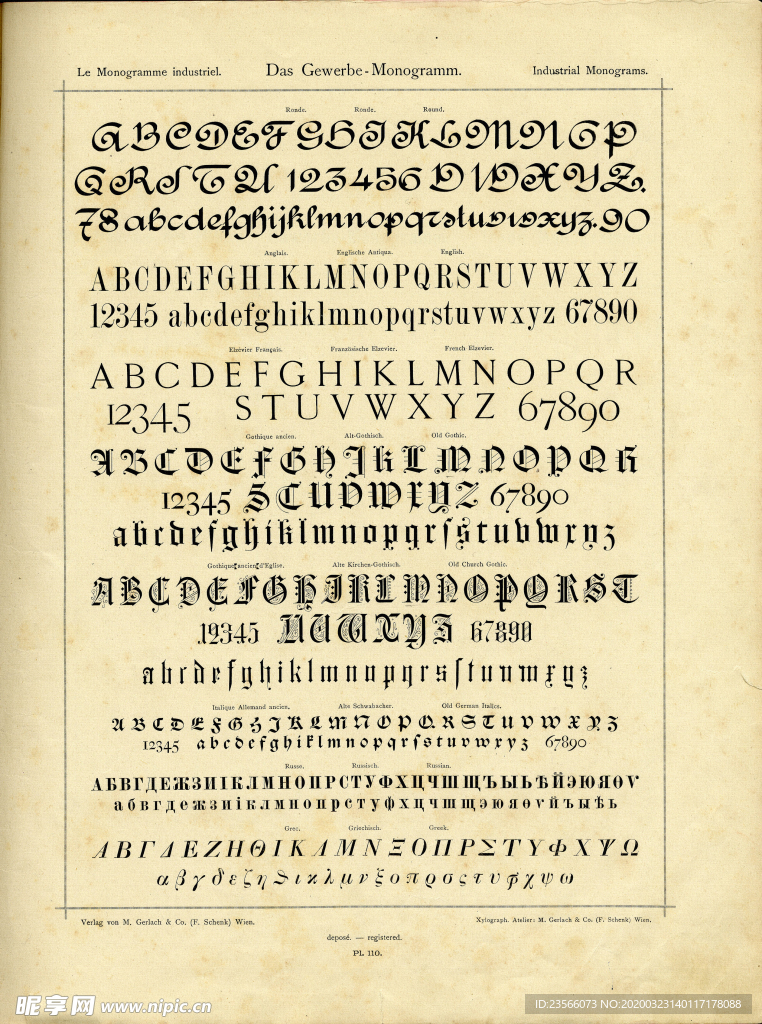 Le Monogramme industriel. Das Gewerbe-Monogramm. Industrial Monograms.
Ronde. Ronde. Round.
A B C D E F G H I K L M N O P
Q R S T U 1 2 3 4 5 6 V W X Y Z.
78 abcdefghijklmnopqrstuvwxyz. 90
Anglais. Englische Antiqua. English.
ABCDEFGHIKLMNOPQRSTUVWXYZ
12345 abcdefghiklmnopqrstuvwxyz 67890
Elzévier Français. Französische Elzevier. French Elzevier.
ABCDEFGHIKLMNOPQR
12345 STUVWXYZ 67890
Gothique ancien. Alt-Gothisch. Old Gothic.
ABCDEFGHJKLMNOPQR
12345 STUVWXYZ 67890
abcdefghiklmnopqrſstuvwxyz
Gothique ancien d'Eglise. Alte Kirchen-Gothisch. Old Church Gothic.
ABCDEFGHIKLMNOPQRST
12345 UVWXYZ 67890
abcdefghiklmnopqrsſtuvwxyz
Italique Allemand ancien. Alte Schwabacher. Old German Italics.
ABCDEFGHJKLMNOPQRSTUVWXYZ
12345 abcdefghiklmnopqrſstuvwxyz 67890
Russe. Russisch. Russian.
АБВГДЕЖЗИІКЛМНОПРСТУФХЦЧШЩЪЫЬѢЙЭЮЯѲѴ
абвгдежзиіклмнопрстуфхцчшщэюяѳѵйъыѣь
Grec. Griechisch. Greek.
ΑΒΓΔΕΖΗΘΙΚΛΜΝΞΟΠΡΣΤΥΦΧΨΩ
αβγδεζηϑικλμνξοπρσςτυφχψω
Verlag von M. Gerlach & Co. (F. Schenk) Wien. Xylograph. Atelier: M. Gerlach & Co. (F. Schenk) Wien.
deposé. — registered.
Pl. 110.
昵享网 www.nipic.cn ID:23566073 NO:20200323140117178088